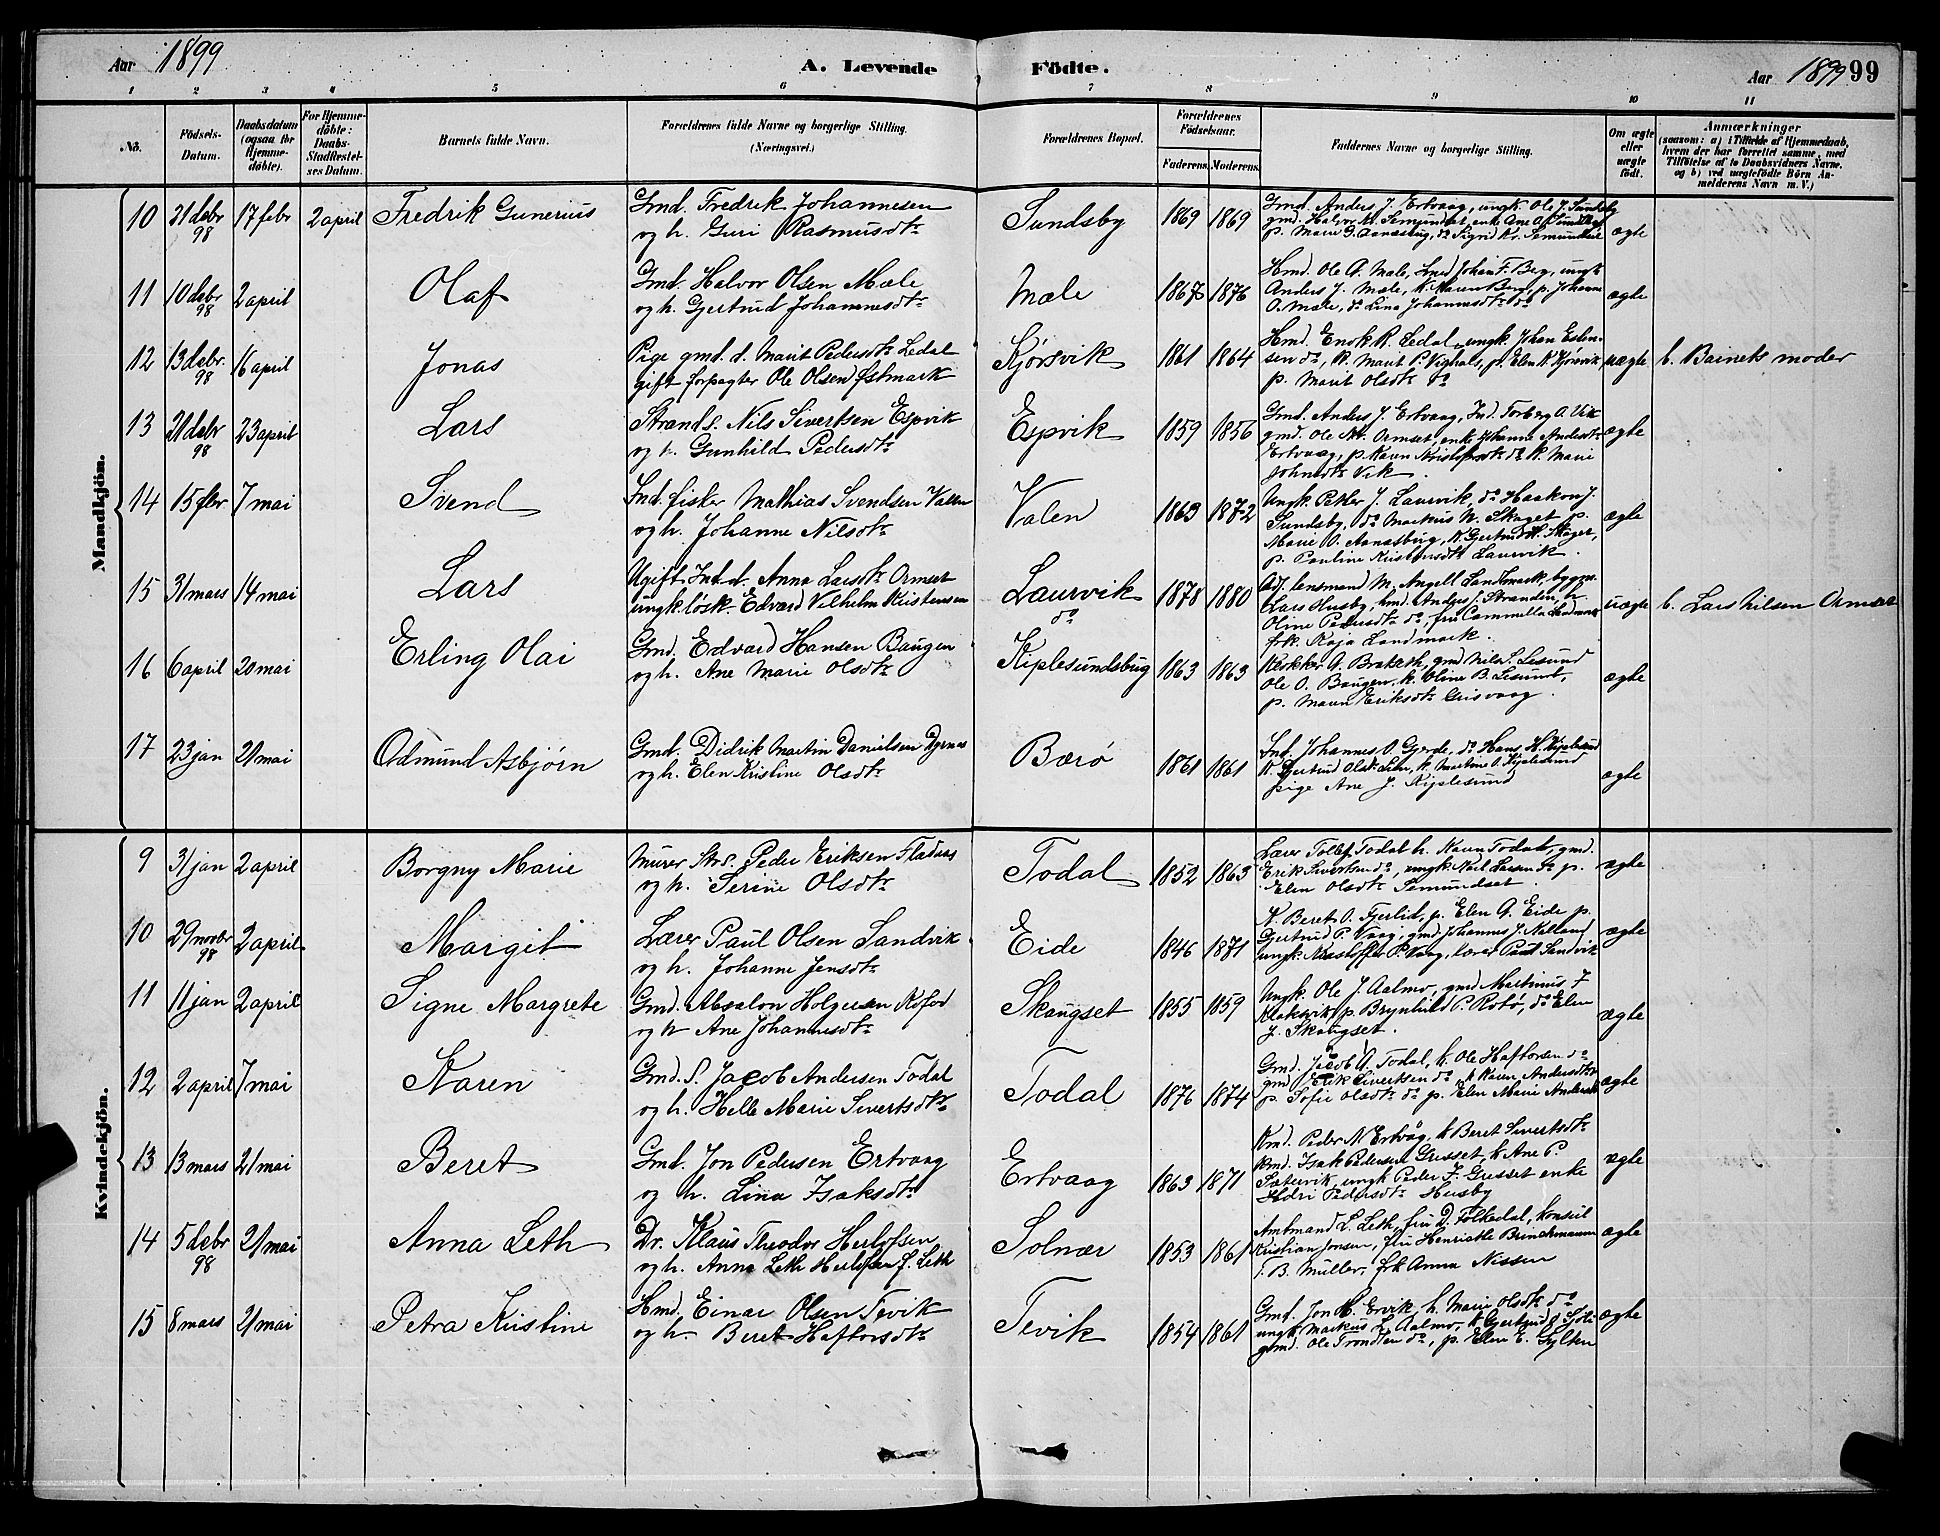 Aar 1899
A. Levende Födte.
Aar 1899 99
1 2 3 4 5 6 7 8 9 10 11
No. Födsels-Datum. Daabsdatum (ogsaa for Hjemme-döbte). For Hjemme-döbte: Daabs-Stadfæstel-ses Datum. Barnets fulde Navn. Forældrenes fulde Navne og borgerlige Stilling. (Næringsvei.) Forældrenes Bopæl. Forældrenes Födselsaar. Faderens. Moderens. Faddernes Navne og borgerlige Stilling. Om ægte eller uægte födt. Anmærkninger (saasom: a) i Tilfælde af Hjemmedaab, hvem der har forrettet samme, med Tilföielse af to Daabsvidners Navne. og b) ved uægtefödte Börn An-melderens Navn m. V.)
Mandkjön.
10 21 debr 98 17 febr 2 april Fredrik Gunerius
Gmd. Fredrik Johannesen
og h. Guri Rasmusdtr
Sundsby 1869 1869
Gmd. Anders J. Ertvaag, ungk. Ole J. Sundsby
gmd. Halvor
ægte
11 10 debr 98 2 april Olaf
Gmd. Halvor Olsen Mæle
og h. Gjertrud Johannesdtr
Mæle 1867 1876
Hmd. Ole A. Mæle, Smed Johan F. Berg, ungk
Anders J. Mæle, k. Karen Berg, p. Johanna
O. Mæle, do Lina Johannesdtr do
ægte
12 13 debr. 98 16 april Jonas
Pige gmd. d. Marit Pedersdtr Ledal
gift forpagter Ole Olsen Østmark
Kjørsvik 1861 1864
Hmd. Enok R. Ledal, ungk. Johan Esten-
sen do, k. Marit P. Vighals, p. Elen K. Kjørsvik
p. Marit Olsdtr do
uægte b. Barnets moder
13 21 debr 98 23 april Lars
Strands. Nils Sivertsen Espvik
og h. Gunhild Pedersdtr
Espvik 1859 1856
Gmd. Anders J. Ertvaag, Ind. Torberg A. Vik
gmd. Ole M. Ormset, enke Johanne Andersdtr
Ertvaag, p. Karen Kristofersdtr do k. Marie
Johnsdtr Vik
ægte
14 15 febr 7 mai Svend
Ind. fisker Mathias Svendsen Valen
og h. Johanne Nilsdtr
Valen 1863 1872
Ungk. Petter J. Laurvik, do Haakon J.
Sundsby, do Markus N. Skaget p.
Marie O. Aanæsbug, k. Gjertrud H. Skaget,
p. Pauline Kristensdtr Laurvik.
ægte
15 31 mars 14 mai Lars
Ugift Ind. d. Anna Larsdtr Ormset
ungk. løsk. Edvard Vilhelm Kristensen
Laurvik do 1878 1880
Adj. lensmand M. Angell Landmark, bygm.
Lars Husby, hmd. Anders J. Stranden, h.
Oline Pedersdtr do, fru Cammella Landmark
frk. Kaja Landmark.
uægte b. Lars Nilsen Ormset
16 6 april 20 mai Erling Olai
Gmd. Edvard Hansen Baugen
og h. Ane Marie Olsdtr
Kiplesundsbug 1863 1863
Kirkker A. Brataeth, gmd Nils S. Lesund
Ole O. Baugen, k. Oline B. Lesund,
p. Maren Eriksdtr Grisvaag.
ægte
17 23 jan 21 mai Odmund Asbjørn
Gmd. Didrik Martin Danielsen Dyrnes
og h. Elen Kristine Olsdtr
Bærø 1861 1861
Ind. Johannes O. Gjerde, do Hans H. Kiplesund
k. Gjertrud Olsdtr k. Martine O. Kiplesund
pige Ane J. Kiplesund
ægte
Kvindekjön.
9 31 jan 2 april Borgny Marie
Murer Strs. Peder Eriksen Fladaas
og h. Serine Olsdtr
Todal 1852 1863
Lærer Tollef Todal h. Karen Todal, gmd.
Erik Sivertsen do, ungk. Larsen do p.
Elen Olsdtr Semundset.
ægte
10 29 novbr 98 2 april Margit
Lærer Paul Olsen Sandvik
og h. Johanne Jensdtr
Eide 1846 1871
K. Beret O. Fjerlid, p. Elen A. Eide p.
Gjertrud P. Vaag, gmd. Johannes J. Nilland
ungk. Kristoffer P. Vaag, lærer Paul Sandvik
ægte
11 11 jan 2 april Signe Margrete
Gmd. Absalon Holgersen Rofod
og h Ane Johannesdtr
Skaugset 1855 1859
Ungk. Ole J. Aalmo, gmd Martinus I
Klaksvik p. Brynhild P. Robø, do Elen
J. Skaugset.
ægte
12 2 april 7 mai Karen
Gmd. S. Jacob Andersen Todal
og h. Helle Marie Sivertsdtr
Todal 1876 1874
Gmd. Jacob A. Todal, k. Ole Haftorsen do
gmd Erik Sivertsen do k Karen Andersdtr
p. Sofie Olsdtr do p. Elen Marie Andersdtr
ægte
13 13 mars 21 mai Beret
Gmd. Jon Pedersen Ertvaag
og h. Lina Isaksdtr
Ertvaag 1863 1871
Kmd. Peder N Ertvåg, k Beret Sivertsdtr
Kmd. Isak Pedersen Gresset, k Ane P
Sætervik, ungk Peder I. Gresset enke
Pedersdtr Husby
ægte
14 5 debr 98 21 mai Anna Leth
Dr. Klaus Theodor Herlofsen
og h. Anna Leth Herlofsen f. Leth
Solnær 1853 1861
Amtmand L. Leth, fru D. Folkedal, konsul
Kristian Jonsen, fru Henriette Brinchmann
T. B. Müller, frk Anna Nissen
ægte
15 8 mars 21 mai Petra Kristine
Hmd. Einar Olsen Tevik
og h. Beret Haftorsdtr
Tevik 1854 1861
Gmd. Jon H. Ervik, h. Marie Olsdtr do
ungk. Markus L. Aalmo, k Gjertrud
gmd. Ole Trondsen do, p. Elen E. Sylten
ægte